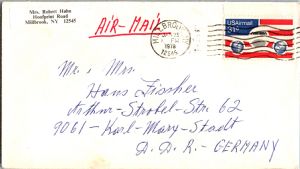 Mrs. Robert Hahn
Hoofprint Road
Millbrook, NY 12545
AIR-MAIL
PM
1978
12545
USAirmail
31c
Mr. & Mrs.
Hans Fissher
Arthur-Strobel-Str 62
9061-Karl-Marx-Stadt
D.D.R.-GERMANY